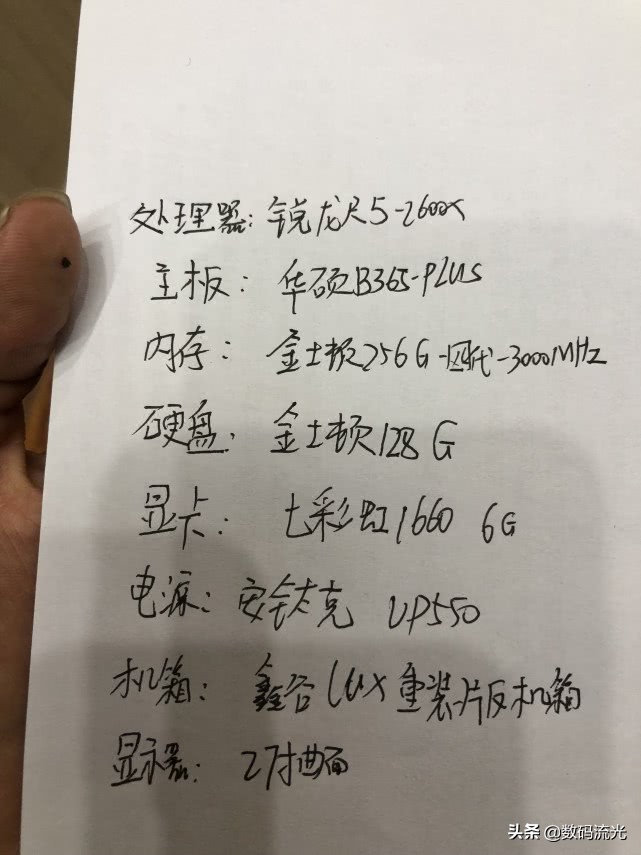 处理器：锐龙R5-2600X
主板：华硕B365-PLUS
内存：金士顿256G-四代-3000MHZ
硬盘：金士顿128G
显卡：七彩虹1660 6G
电源：安钛克 VP550
机箱：鑫谷LUX重装版机箱
显示器：27寸曲面
头条 @数码流光